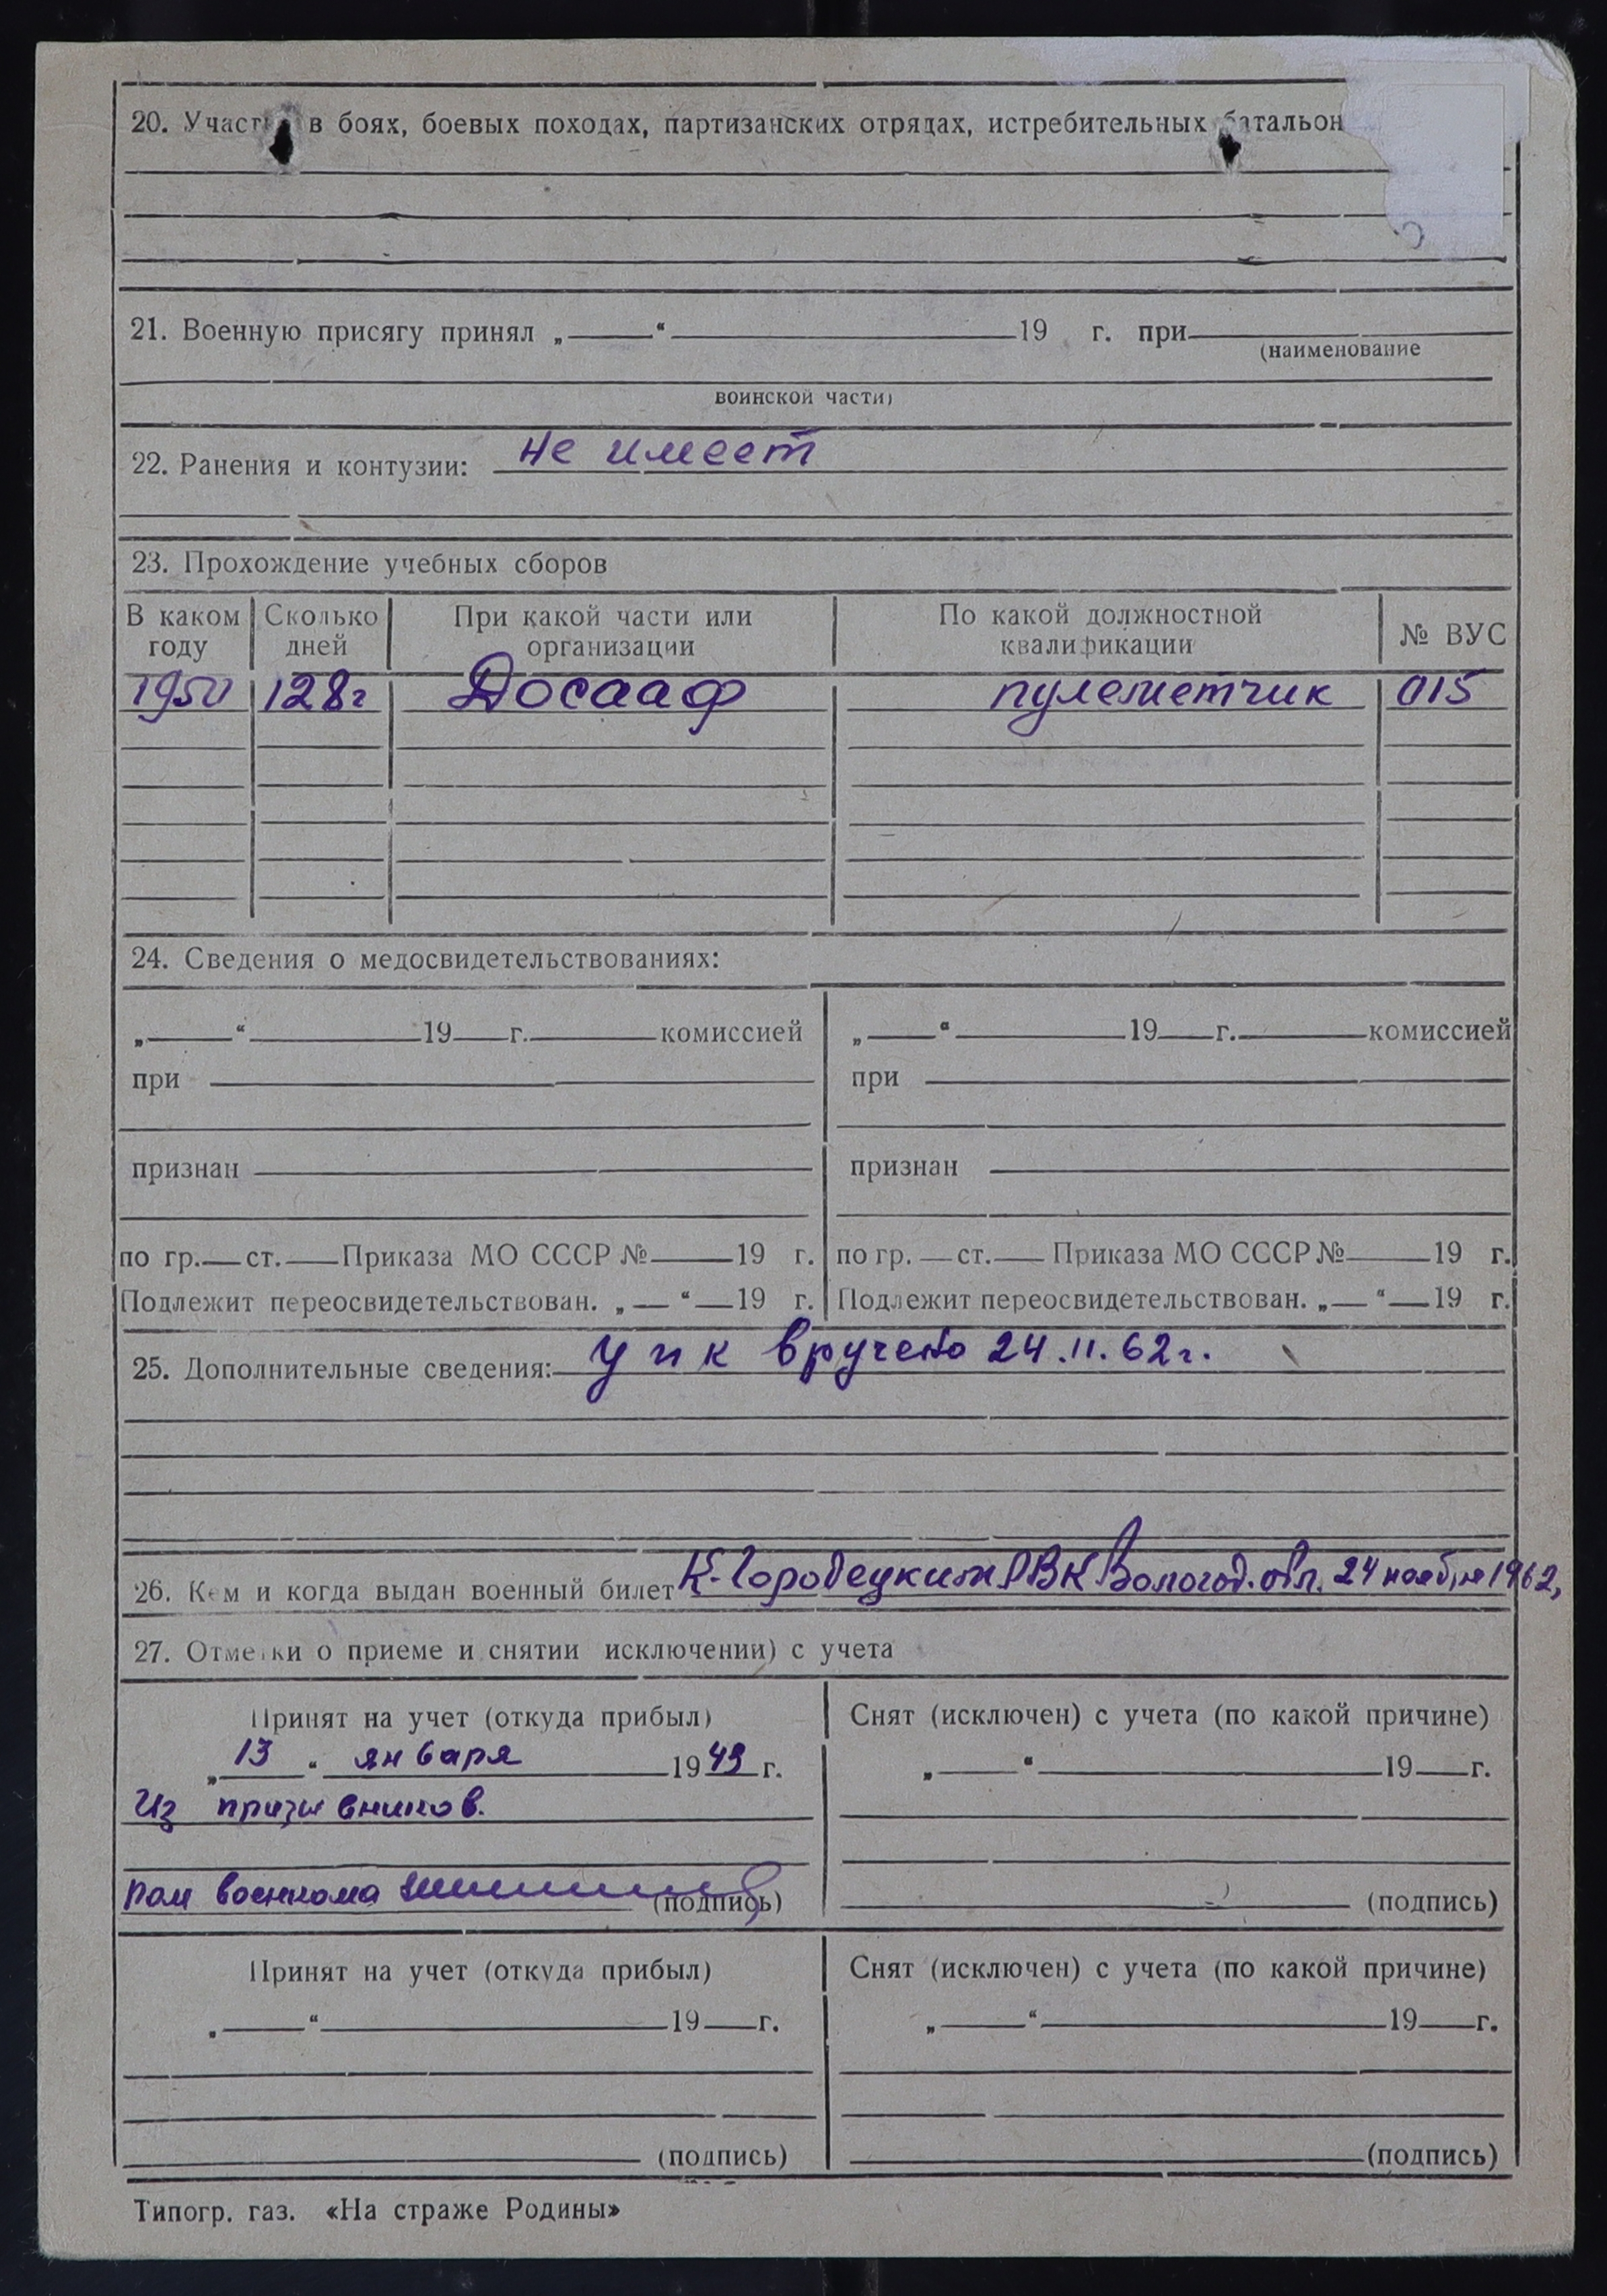 20. Участие в боях, боевых походах, партизанских отрядах, истребительных батальон
21. Военную присягу принял „ “ 19 г. при
(наименование
воинской части)
22. Ранения и контузии: не имеет
23. Прохождение учебных сборов
В каком году Сколько дней При какой части или организации По какой должностной квалификации № ВУС
1950 128г Досааф пулеметчик 015
24. Сведения о медосвидетельствованиях:
„ “ 19 г. комиссией
при
признан
по гр. ст. Приказа МО СССР № 19 г.
Подлежит переосвидетельствован. „ “ 19 г.
„ “ 19 г. комиссией
при
признан
по гр. ст. Приказа МО СССР № 19 г.
Подлежит переосвидетельствован. „ “ 19 г.
25. Дополнительные сведения: упк вручено 24.11.62г.
26. Кем и когда выдан военный билет К-Городецким РВК Вологод. обл. 24 ноября 1962,
27. Отметки о приеме и снятии исключении) с учета
Принят на учет (откуда прибыл)
„13“ января 1949 г.
Из призывников.
Пом военкома (подпись)
Снят (исключен) с учета (по какой причине)
„ “ 19 г.
(подпись)
Принят на учет (откуда прибыл)
„ “ 19 г.
(подпись)
Снят (исключен) с учета (по какой причине)
„ “ 19 г.
(подпись)
Типогр. газ. «На страже Родины»